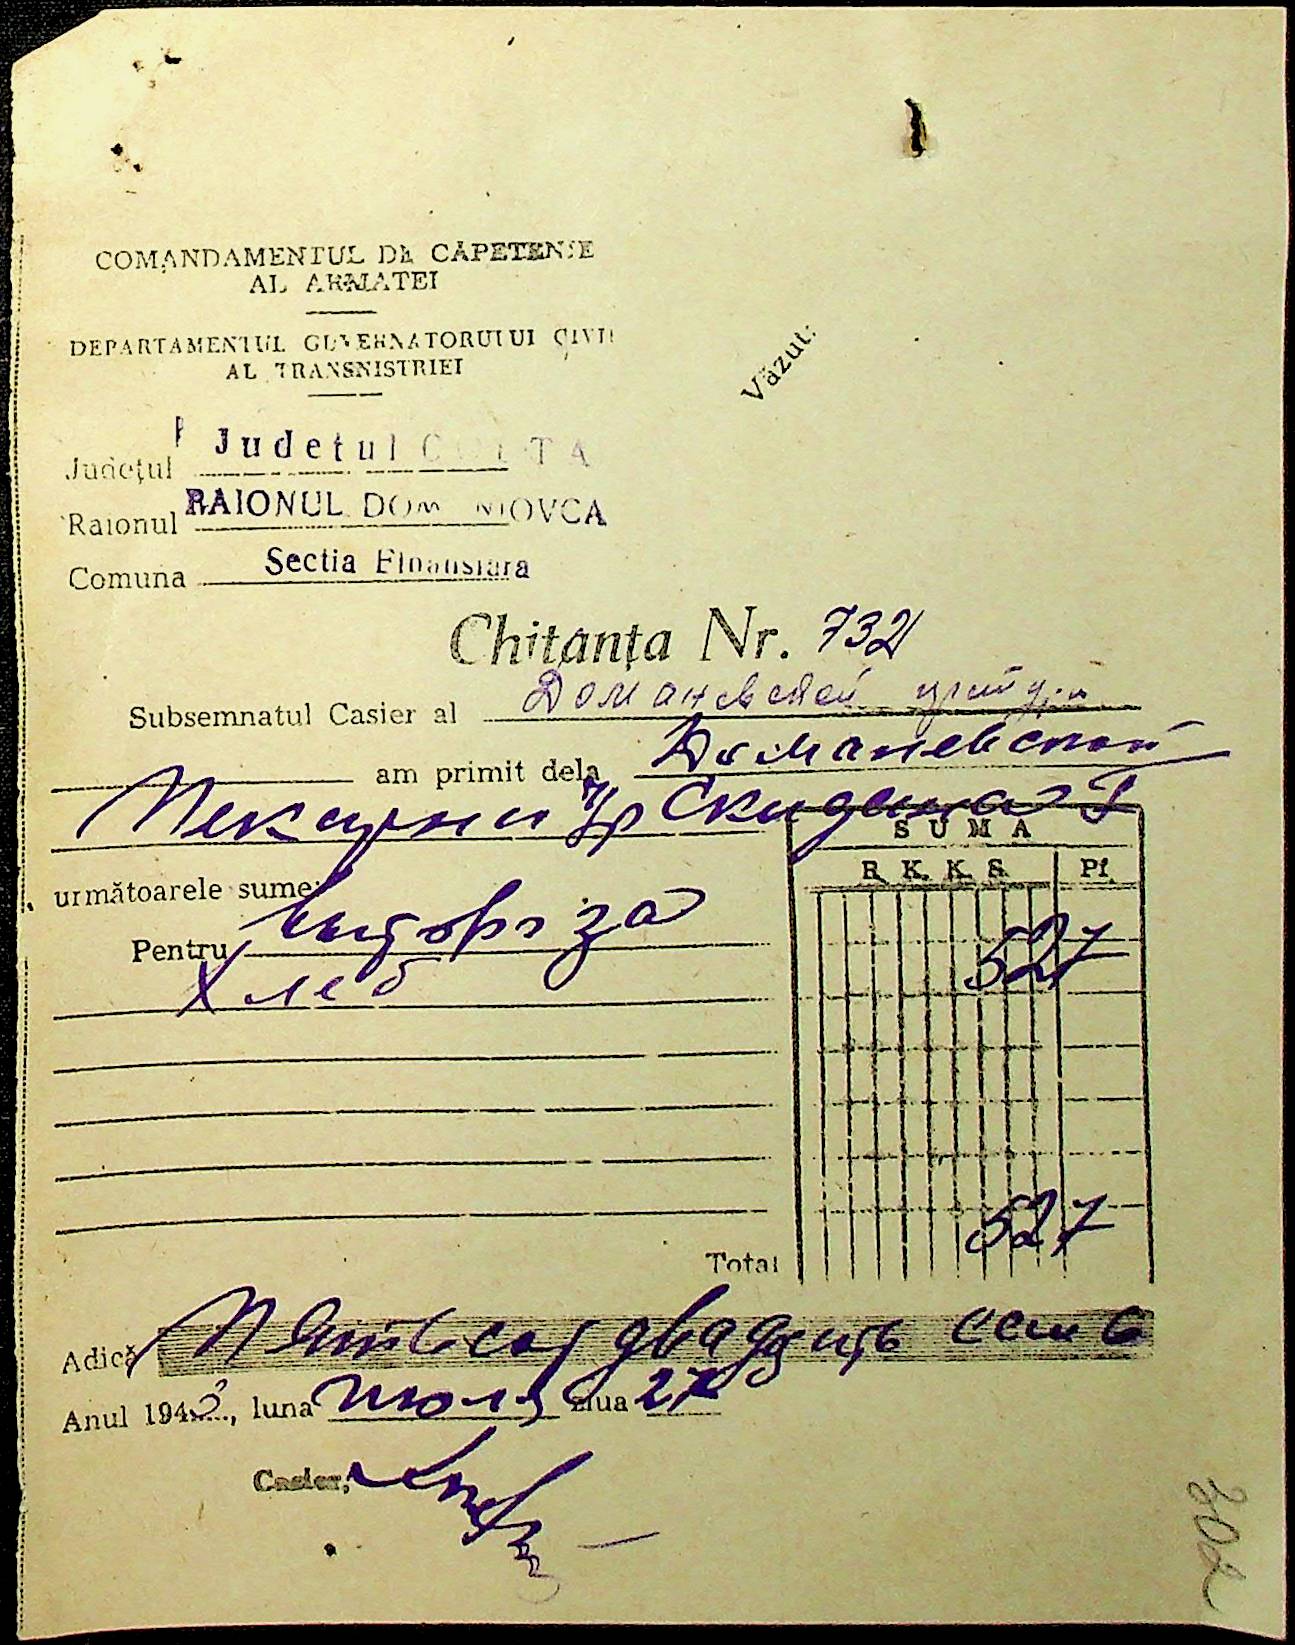 COMANDAMENTUL DE CĂPETENIE
AL ARMATEI
DEPARTAMENTUL GUVERNATORULUI CIVIL
AL TRANSNISTRIEI
Văzut:
Județul Judetul GOLTA
Raionul RAIONUL DOMANIOVCA
Comuna Sectia Finansiara
Chitanța Nr. 732
Subsemnatul Casier al Доманевской
am primit dela Доманевской
Пекарни
SUMA
R. K. K. S. Pf.
următoarele sume:
Pentru за 527
Хлеб
Total 527
Adică Пятьсот двадцать семь
Anul 1943, luna июля ziua 27
Casier,
302